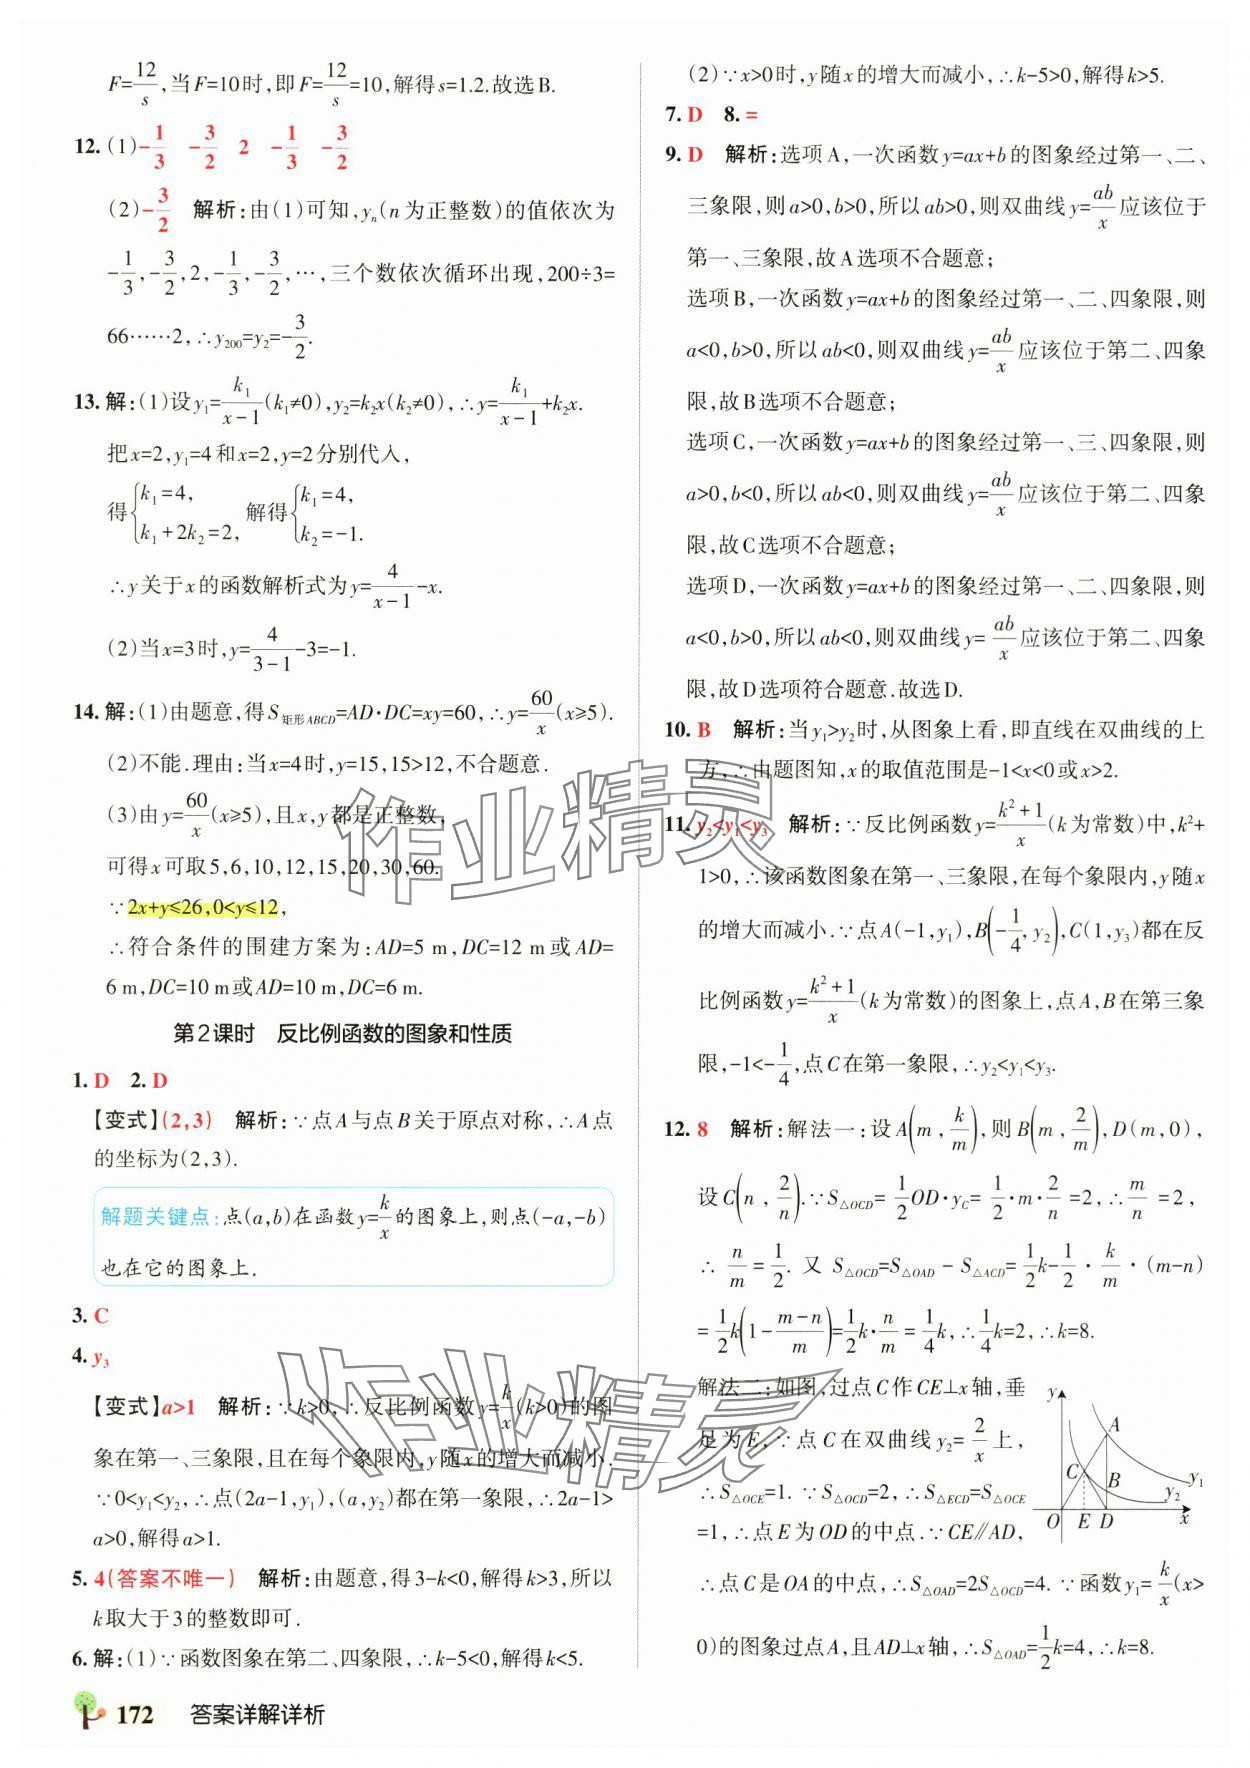 F=12/s,当F=10时,即F=12/s=10,解得s=1.2.故选B.
12.(1)-1/3 -3/2 2 -1/3 -3/2
(2)-3/2 解析:由(1)可知,yₙ(n为正整数)的值依次为
-1/3,-3/2,2,-1/3,-3/2,…,三个数依次循环出现,200÷3=
66……2,∴y₂₀₀=y₂=-3/2.
13.解:(1)设y₁=k₁/(x-1)(k₁≠0),y₂=k₂x(k₂≠0),∴y=k₁/(x-1)+k₂x.
把x=2,y₁=4和x=2,y=2分别代入,
得{k₁=4, k₁+2k₂=2, 解得{k₁=4, k₂=-1.
∴y关于x的函数解析式为y=4/(x-1)-x.
(2)当x=3时,y=4/(3-1)-3=-1.
14.解:(1)由题意,得S矩形ABCD=AD·DC=xy=60,∴y=60/x(x≥5).
(2)不能.理由:当x=4时,y=15,15>12,不合题意.
(3)由y=60/x(x≥5),且x,y都是正整数,
可得x可取5,6,10,12,15,20,30,60.
∵2x+y≤26,0<y≤12,
∴符合条件的围建方案为:AD=5 m,DC=12 m或AD=
6 m,DC=10 m或AD=10 m,DC=6 m.
第2课时 反比例函数的图象和性质
1. D 2. D
【变式】(2,3) 解析:∵点A与点B关于原点对称,∴A点
的坐标为(2,3).
解题关键点:点(a,b)在函数y=k/x的图象上,则点(-a,-b)
也在它的图象上.
3. C
4. y₃
【变式】a>1 解析:∵k>0,∴反比例函数y=k/x(k>0)的图
象在第一、三象限,且在每个象限内,y随x的增大而减小.
∵0<y₁<y₂,∴点(2a-1,y₁),(a,y₂)都在第一象限,∴2a-1>
a>0,解得a>1.
5. 4(答案不唯一) 解析:由题意,得3-k<0,解得k>3,所以
k取大于3的整数即可.
6.解:(1)∵函数图象在第二、四象限,∴k-5<0,解得k<5.
172 答案详解详析
(2)∵x>0时,y随x的增大而减小,∴k-5>0,解得k>5.
7. D 8. =
9. D 解析:选项A,一次函数y=ax+b的图象经过第一、二、
三象限,则a>0,b>0,所以ab>0,则双曲线y=ab/x应该位于
第一、三象限,故A选项不合题意;
选项B,一次函数y=ax+b的图象经过第一、二、四象限,则
a<0,b>0,所以ab<0,则双曲线y=ab/x应该位于第二、四象
限,故B选项不合题意;
选项C,一次函数y=ax+b的图象经过第一、三、四象限,则
a>0,b<0,所以ab<0,则双曲线y=ab/x应该位于第二、四象
限,故C选项不合题意;
选项D,一次函数y=ax+b的图象经过第一、二、四象限,则
a<0,b>0,所以ab<0,则双曲线y=ab/x应该位于第二、四象
限,故D选项符合题意.故选D.
10. B 解析:当y₁>y₂时,从图象上看,即直线在双曲线的上
方,∴由题图知,x的取值范围是-1<x<0或x>2.
11. y₂<y₁<y₃ 解析:∵反比例函数y=(k²+1)/x(k为常数)中,k²+
1>0,∴该函数图象在第一、三象限,在每个象限内,y随x
的增大而减小.∵点A(-1,y₁),B(-1/4,y₂),C(1,y₃)都在反
比例函数y=(k²+1)/x(k为常数)的图象上,点A,B在第三象
限,-1<-1/4,点C在第一象限,∴y₂<y₁<y₃.
12. 8 解析:解法一:设A(m,k/m),则B(m,2/m),D(m,0),
设C(n,2/n).∵S△OCD=1/2OD·yC=1/2·m·2/n=2,∴m/n=2,
∴n/m=1/2.又S△OCD=S△OAD-S△ACD=1/2k-1/2·k/m·(m-n)
=1/2k(1-(m-n)/m)=1/2k·n/m=1/4k,∴1/4k=2,∴k=8.
解法二:如图,过点C作CE⊥x轴,垂
足为E,∵点C在双曲线y₂=2/x上,
∴S△OCE=1.∵S△OCD=2,∴S△ECD=S△OCE
=1,∴点E为OD的中点.∵CE∥AD,
∴点C是OA的中点,∴S△OAD=2S△OCD=4.∵函数y₁=k/x(x>
0)的图象过点A,且AD⊥x轴,∴S△OAD=1/2k=4,∴k=8.
y
A
C
B
y₁
y₂
O E D x
作业精灵
作业精灵